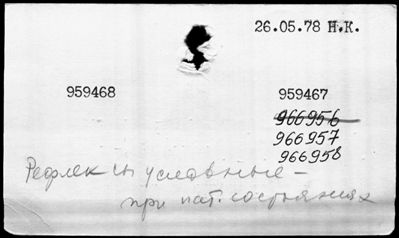 26.05.78 Н.К.
959468 959467
966956
966957
966958
Рефлексы условные -
при пат. состояниях